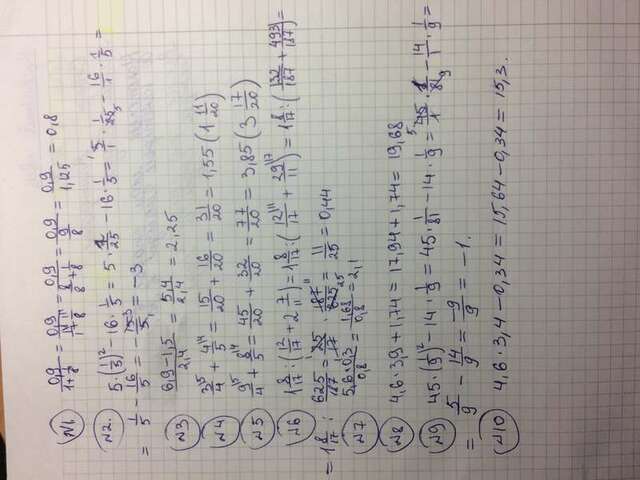 №1. 0,9/(1+1/8) = 0,9/(1/1+1/8) = 0,9/(8/8+1/8) = 0,9/(9/8) = 0,9/1,25 = 0,8
№2. 5·(1/5)² - 16·1/5 = 5·1/25 - 16·1/5 = 5/1·1/25 - 16/1·1/5 =
= 1/5 - 16/5 = -15/5 = -3
№3 (6,9-1,5)/2,4 = 5,4/2,4 = 2,25
№4 3/4 + 4/5 = 15/20 + 16/20 = 31/20 = 1,55 (1 11/20)
№5 9/4 + 8/5 = 45/20 + 32/20 = 77/20 = 3,85 (3 17/20)
№6 1 8/17 : (12/17 + 2 7/11) = 1 8/17 : (12/17 + 29/11) = 1 8/17 : (132/187 + 493/187) =
= 1 8/17 : 625/187 = 25/17 · 187/625 = 11/25 = 0,44
№7 5,6·0,3/0,8 = 1,68/0,8 = 2,1
№8 4,6·3,9+1,74 = 17,94+1,74 = 19,68
№9 45·(1/9)² - 14·1/9 = 45·1/81 - 14·1/9 = 45/1·1/81 - 14/1·1/9 =
= 5/9 - 14/9 = -9/9 = -1.
№10 4,6·3,4-0,34 = 15,64-0,34 = 15,3.